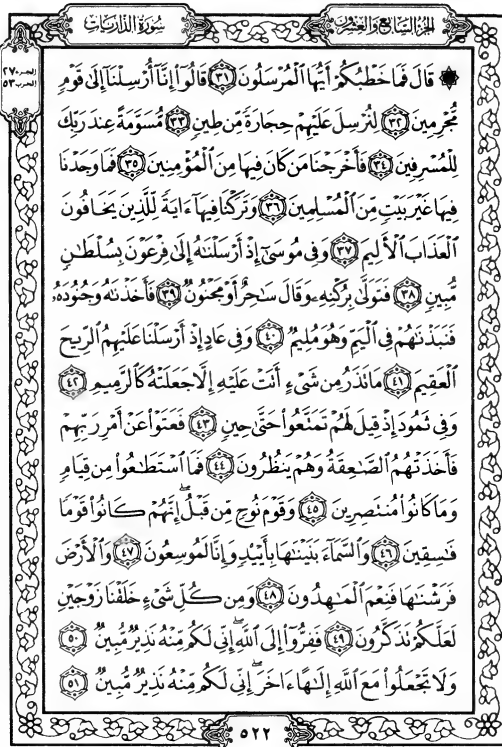 الجزء السابع والعشرون
سورة الذاريات
الجزء ٢٧
الحزب ٥٣
۞ قَالَ فَمَا خَطْبُكُمْ أَيُّهَا ٱلْمُرْسَلُونَ ٣١ قَالُوٓا۟ إِنَّآ أُرْسِلْنَآ إِلَىٰ قَوْمٍ
مُّجْرِمِينَ ٣٢ لِنُرْسِلَ عَلَيْهِمْ حِجَارَةً مِّن طِينٍ ٣٣ مُّسَوَّمَةً عِندَ رَبِّكَ
لِلْمُسْرِفِينَ ٣٤ فَأَخْرَجْنَا مَن كَانَ فِيهَا مِنَ ٱلْمُؤْمِنِينَ ٣٥ فَمَا وَجَدْنَا
فِيهَا غَيْرَ بَيْتٍ مِّنَ ٱلْمُسْلِمِينَ ٣٦ وَتَرَكْنَا فِيهَآ ءَايَةً لِّلَّذِينَ يَخَافُونَ
ٱلْعَذَابَ ٱلْأَلِيمَ ٣٧ وَفِى مُوسَىٰٓ إِذْ أَرْسَلْنَٰهُ إِلَىٰ فِرْعَوْنَ بِسُلْطَٰنٍ
مُّبِينٍ ٣٨ فَتَوَلَّىٰ بِرُكْنِهِۦ وَقَالَ سَٰحِرٌ أَوْ مَجْنُونٌ ٣٩ فَأَخَذْنَٰهُ وَجُنُودَهُۥ
فَنَبَذْنَٰهُمْ فِى ٱلْيَمِّ وَهُوَ مُلِيمٌ ٤٠ وَفِى عَادٍ إِذْ أَرْسَلْنَا عَلَيْهِمُ ٱلرِّيحَ
ٱلْعَقِيمَ ٤١ مَا تَذَرُ مِن شَىْءٍ أَتَتْ عَلَيْهِ إِلَّا جَعَلَتْهُ كَٱلرَّمِيمِ ٤٢
وَفِى ثَمُودَ إِذْ قِيلَ لَهُمْ تَمَتَّعُوا۟ حَتَّىٰ حِينٍ ٤٣ فَعَتَوْا۟ عَنْ أَمْرِ رَبِّهِمْ
فَأَخَذَتْهُمُ ٱلصَّٰعِقَةُ وَهُمْ يَنظُرُونَ ٤٤ فَمَا ٱسْتَطَٰعُوا۟ مِن قِيَامٍ
وَمَا كَانُوا۟ مُنتَصِرِينَ ٤٥ وَقَوْمَ نُوحٍ مِّن قَبْلُ ۖ إِنَّهُمْ كَانُوا۟ قَوْمًا
فَٰسِقِينَ ٤٦ وَٱلسَّمَآءَ بَنَيْنَٰهَا بِأَيْي۟دٍ وَإِنَّا لَمُوسِعُونَ ٤٧ وَٱلْأَرْضَ
فَرَشْنَٰهَا فَنِعْمَ ٱلْمَٰهِدُونَ ٤٨ وَمِن كُلِّ شَىْءٍ خَلَقْنَا زَوْجَيْنِ
لَعَلَّكُمْ تَذَكَّرُونَ ٤٩ فَفِرُّوٓا۟ إِلَى ٱللَّهِ ۖ إِنِّى لَكُم مِّنْهُ نَذِيرٌ مُّبِينٌ ٥٠
وَلَا تَجْعَلُوا۟ مَعَ ٱللَّهِ إِلَٰهًا ءَاخَرَ ۖ إِنِّى لَكُم مِّنْهُ نَذِيرٌ مُّبِينٌ ٥١
٥٢٢